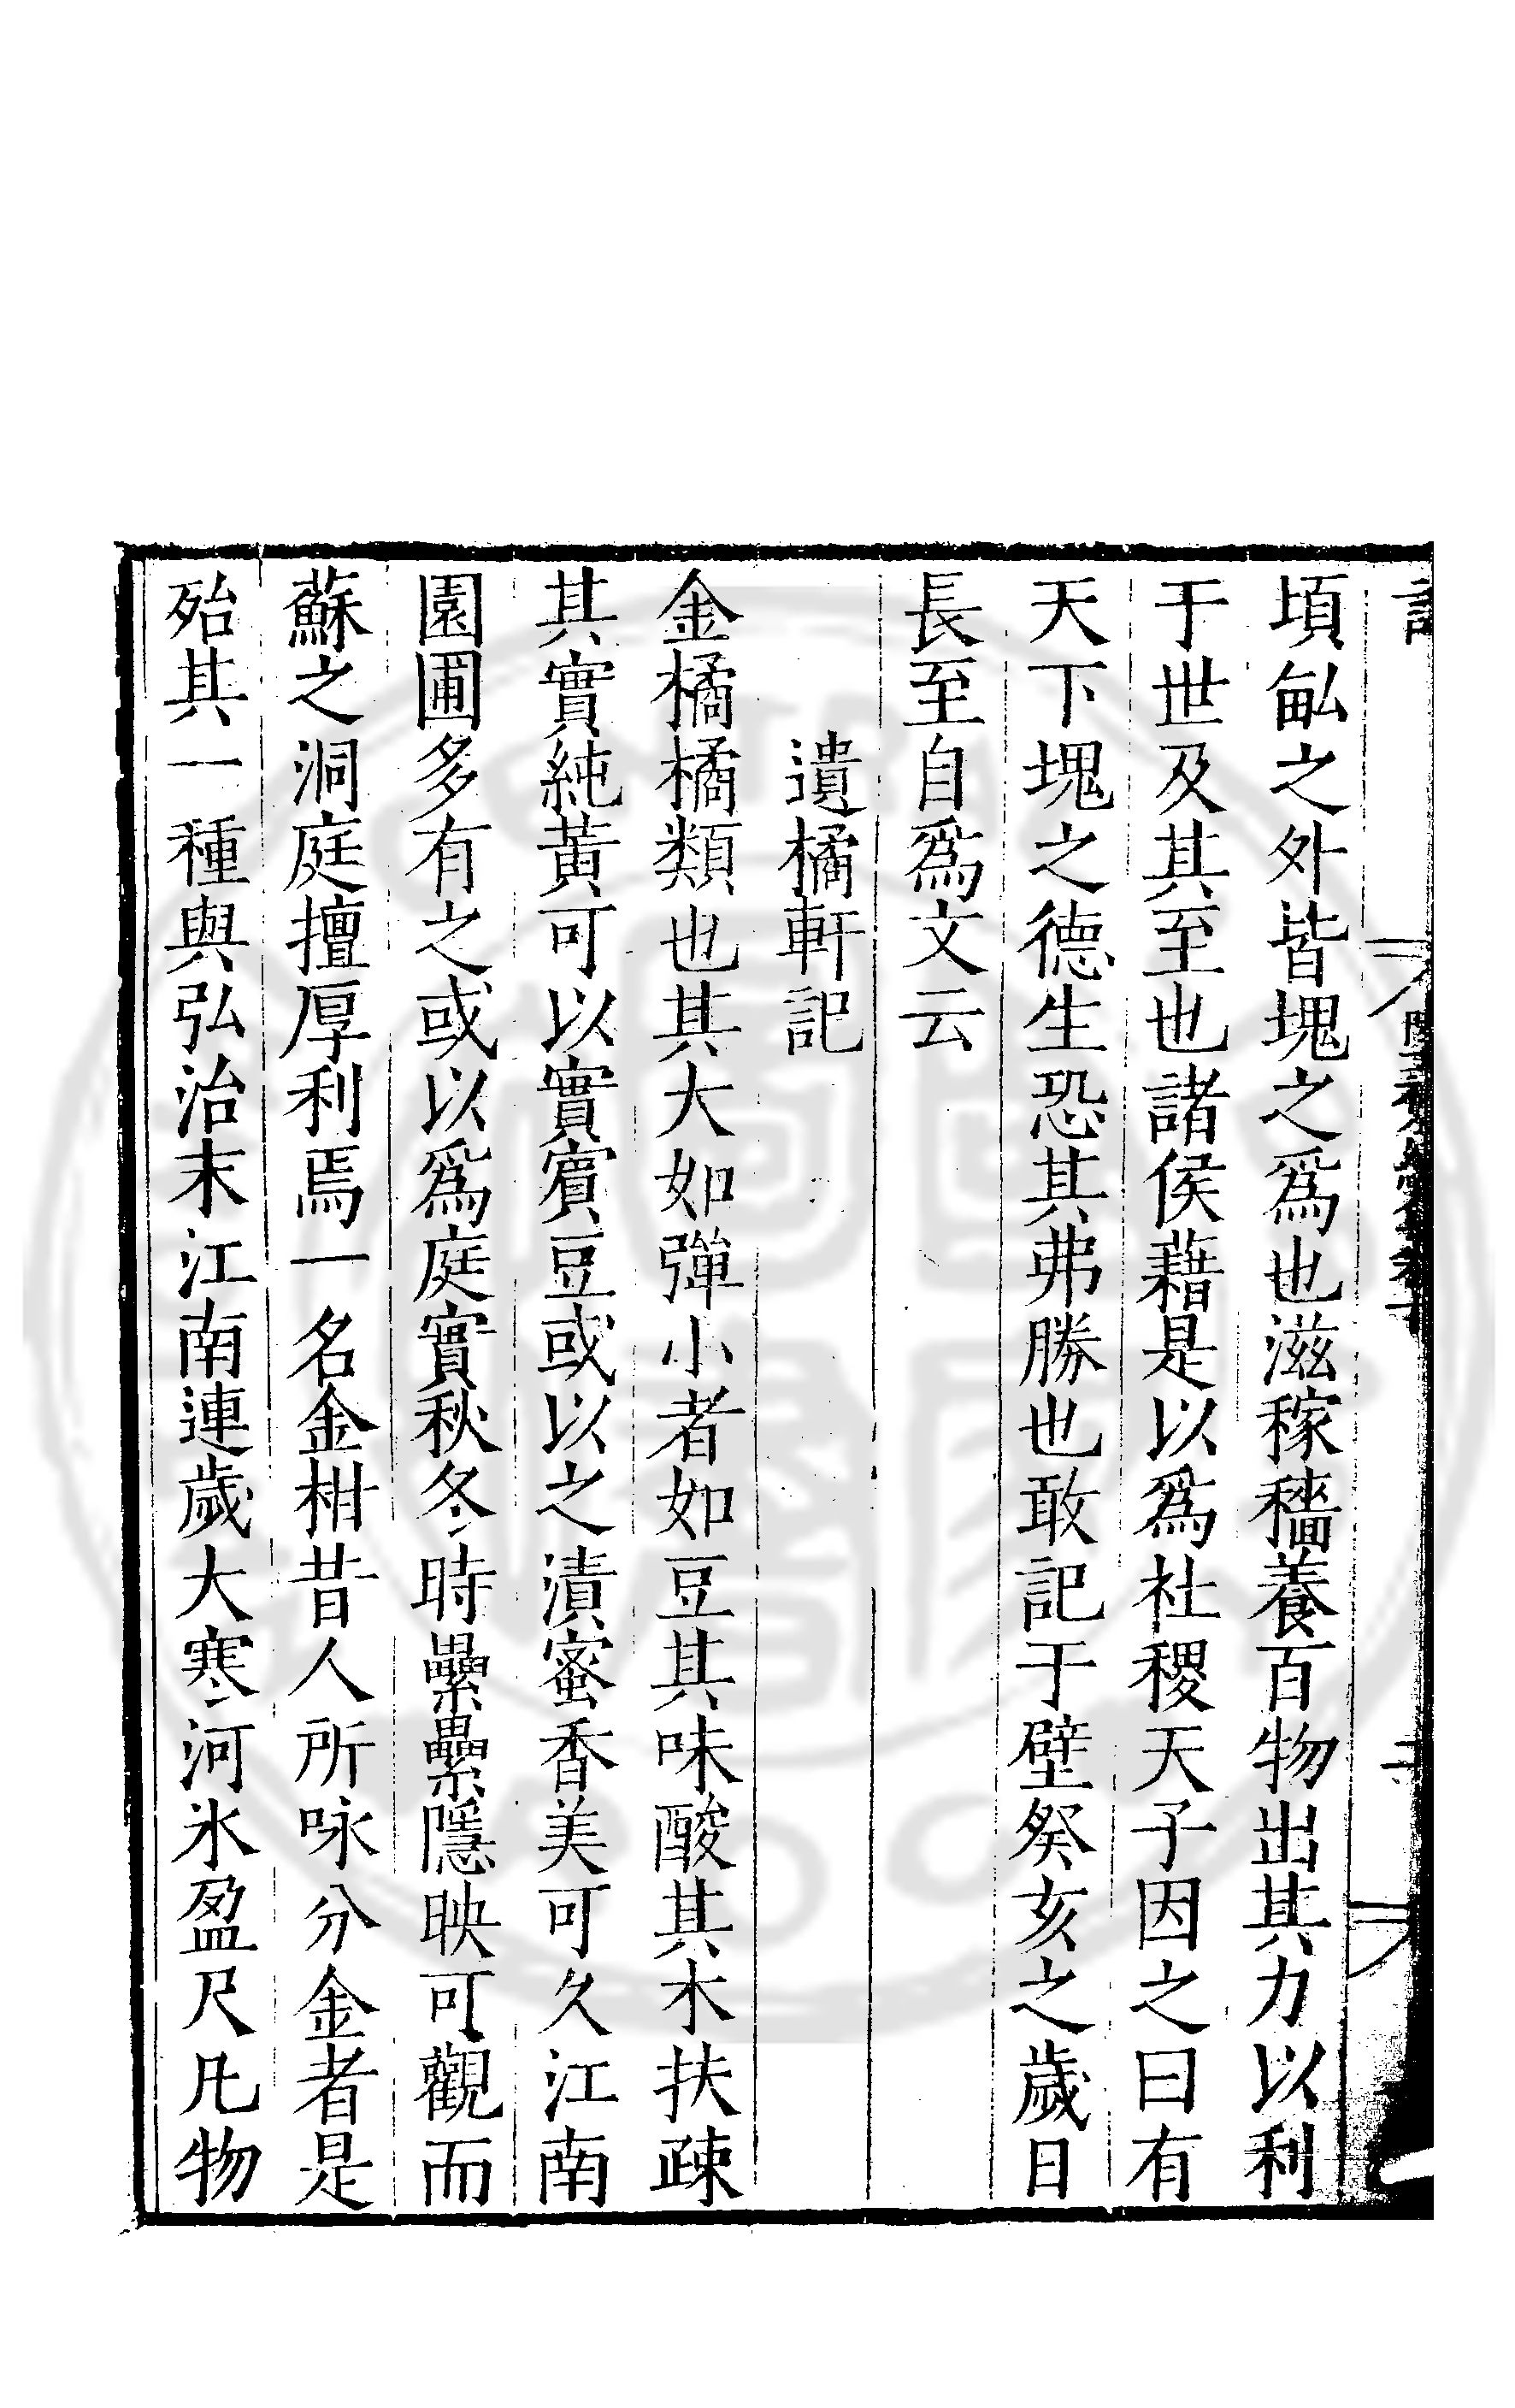 頃畝之外皆塊之爲也滋稼穡養百物出其力以利
于世及其至也諸侯藉是以爲社稷天子因之曰有
天下塊之德生恐其弗勝也敢記于壁癸亥之歲日
長至自爲文云
遺橘軒記
金橘橘類也其大如彈小者如豆其味酸其木扶疎
其實純黃可以實賓豆或以之漬蜜香美可久江南
園圃多有之或以爲庭實秋冬時纍纍隱映可觀而
蘇之洞庭擅厚利焉一名金柑昔人所咏分金者是
殆其一種與弘治末江南連歲大寒河氷盈尺凡物